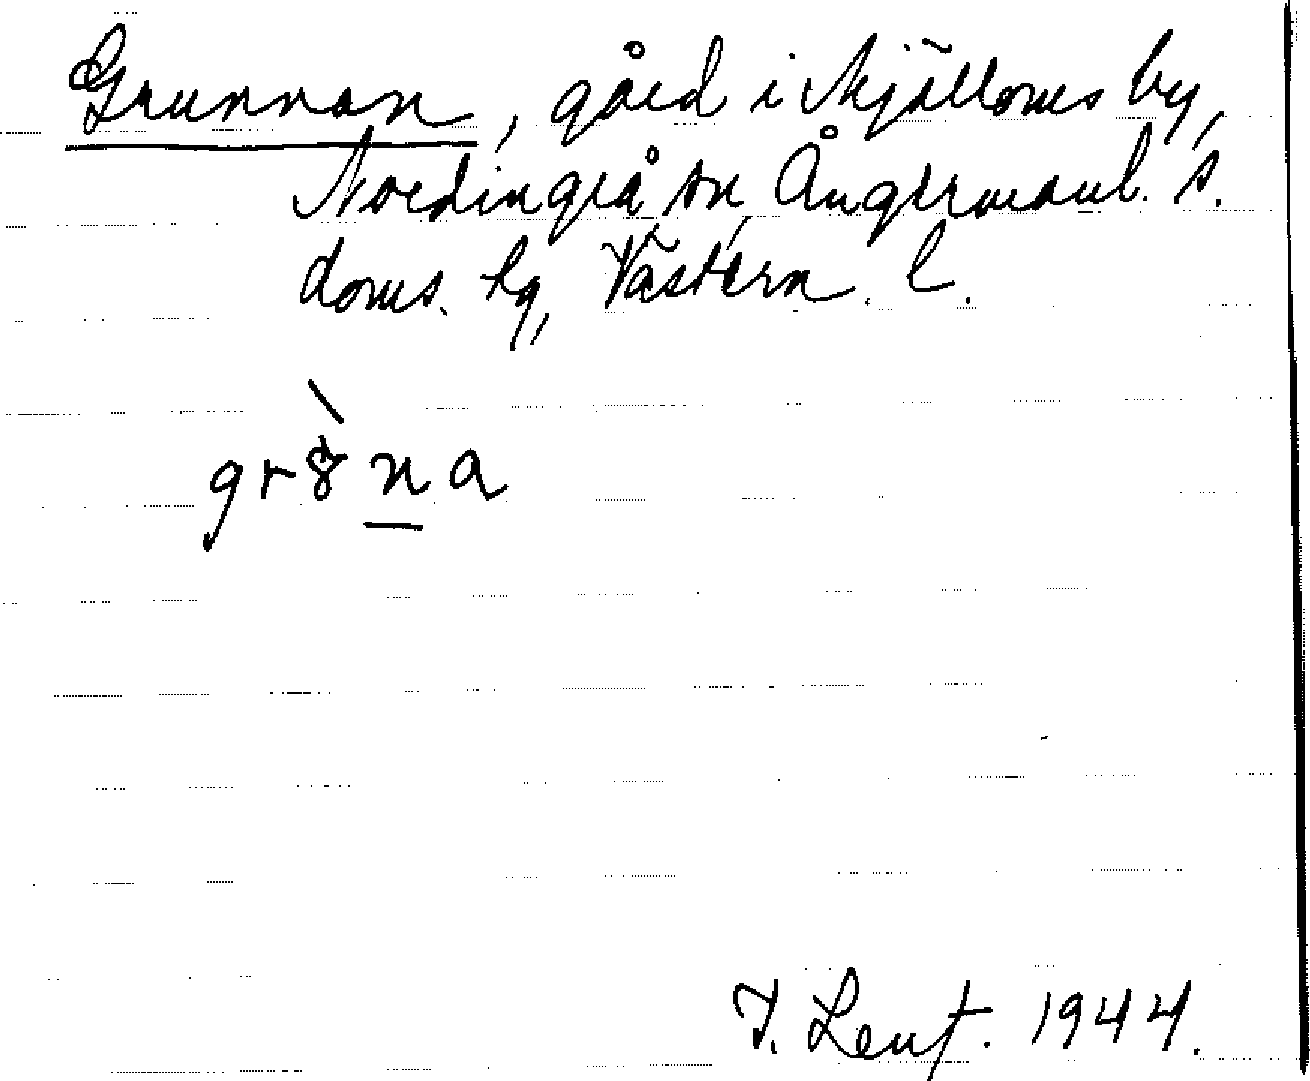 Grunnan, gård i Mjälloms by,
Nordingrå sn, Ångermanl. s.
doms. hg, Västern. l.
gr8̀na
1944.